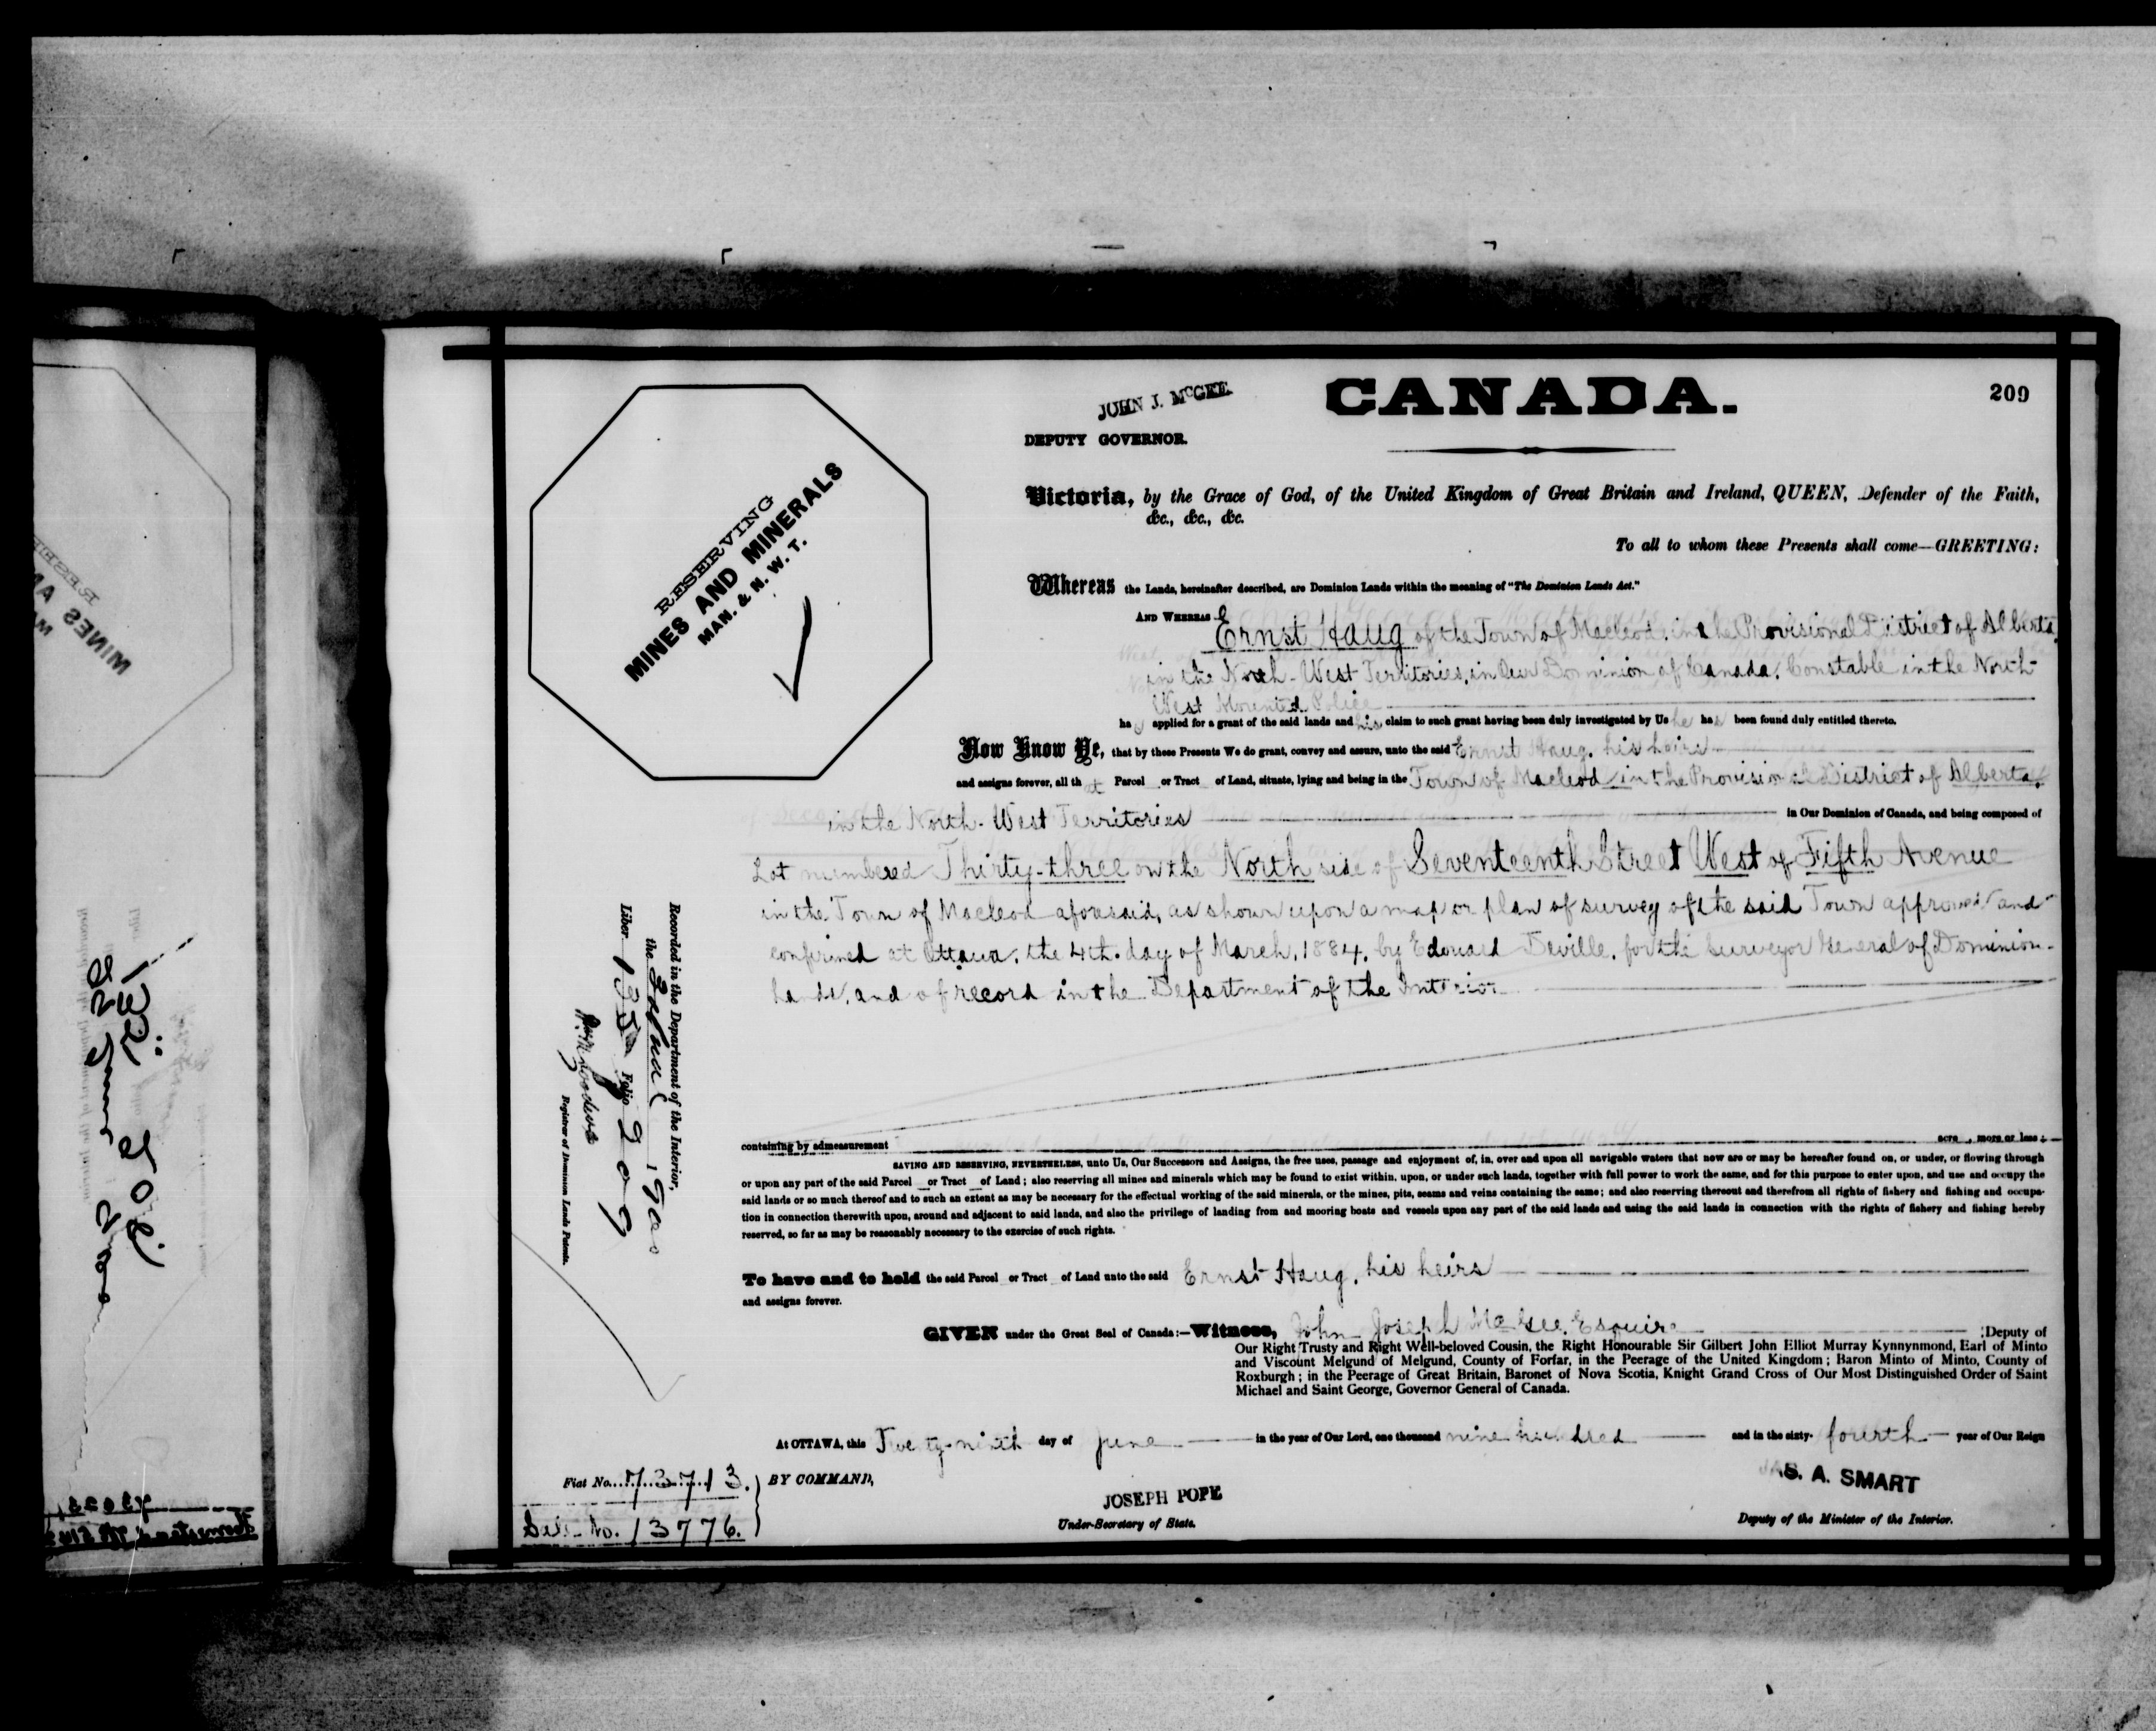 JOHN J. McGEE.
CANADA.
209
DEPUTY GOVERNOR.
RESERVING
MINES AND MINERALS
MAN. & N. W. T.
Victoria, by the Grace of God, of the United Kingdom of Great Britain and Ireland, QUEEN, Defender of the Faith,
&c., &c., &c.
To all to whom these Presents shall come—GREETING:
Whereas the Lands, hereinafter described, are Dominion Lands within the meaning of "The Dominion Lands Act."
AND WHEREAS
Ernst Haug of the Town of Macleod, in the Provisional District of Alberta,
in the North-West Territories, in Our Dominion of Canada, Constable in the North-
West Mounted Police
has applied for a grant of the said lands and his claim to such grant having been duly investigated by Us he has been found duly entitled thereto.
Now Know Ye, that by these Presents We do grant, convey and assure, unto the said Ernst Haug, his heirs
and assigns forever, all that Parcel or Tract of Land, situate, lying and being in the Town of Macleod in the Provisional District of Alberta,
in the North-West Territories in Our Dominion of Canada, and being composed of
Lot numbered Thirty-three on the North side of Seventeenth Street West of Fifth Avenue
in the Town of Macleod aforesaid, as shown upon a map or plan of survey of the said Town approved and
confirmed at Ottawa, the 4th. day of March, 1884, by Edouard Deville, for the Surveyor General of Dominion
Lands, and of record in the Department of the Interior
containing by admeasurement acre , more or less ;
SAVING AND RESERVING, NEVERTHELESS, unto Us, Our Successors and Assigns, the free uses, passage and enjoyment of, in, over and upon all navigable waters that now are or may be hereafter found on, or under, or flowing through
or upon any part of the said Parcel or Tract of Land ; also reserving all mines and minerals which may be found to exist within, upon, or under such lands, together with full power to work the same, and for this purpose to enter upon, and use and occupy the
said lands or so much thereof and to such an extent as may be necessary for the effectual working of the said minerals, or the mines, pits, seams and veins containing the same ; and also reserving thereout and therefrom all rights of fishery and fishing and occupa-
tion in connection therewith upon, around and adjacent to said lands, and also the privilege of landing from and mooring boats and vessels upon any part of the said lands and using the said lands in connection with the rights of fishery and fishing hereby
reserved, so far as may be reasonably necessary to the exercise of such rights.
To have and to hold the said Parcel or Tract of Land unto the said Ernst Haug, his heirs
and assigns forever.
GIVEN under the Great Seal of Canada:—Witness, John Joseph McGee, Esquire ; Deputy of
Our Right Trusty and Right Well-beloved Cousin, the Right Honourable Sir Gilbert John Elliot Murray Kynnynmond, Earl of Minto
and Viscount Melgund of Melgund, County of Forfar, in the Peerage of the United Kingdom ; Baron Minto of Minto, County of
Roxburgh ; in the Peerage of Great Britain, Baronet of Nova Scotia, Knight Grand Cross of Our Most Distinguished Order of Saint
Michael and Saint George, Governor General of Canada.
At OTTAWA, this Twenty-ninth day of June in the year of Our Lord, one thousand nine hundred and in the sixty- fourth year of Our Reign
BY COMMAND,
JOSEPH POPE
Under-Secretary of State.
JAS. A. SMART
Deputy of the Minister of the Interior.
Fiat No. 73713.
Sale No. 13776.
Recorded in the Department of the Interior,
the 1900
Liber Folio 209
Registrar of Dominion Lands Patents.